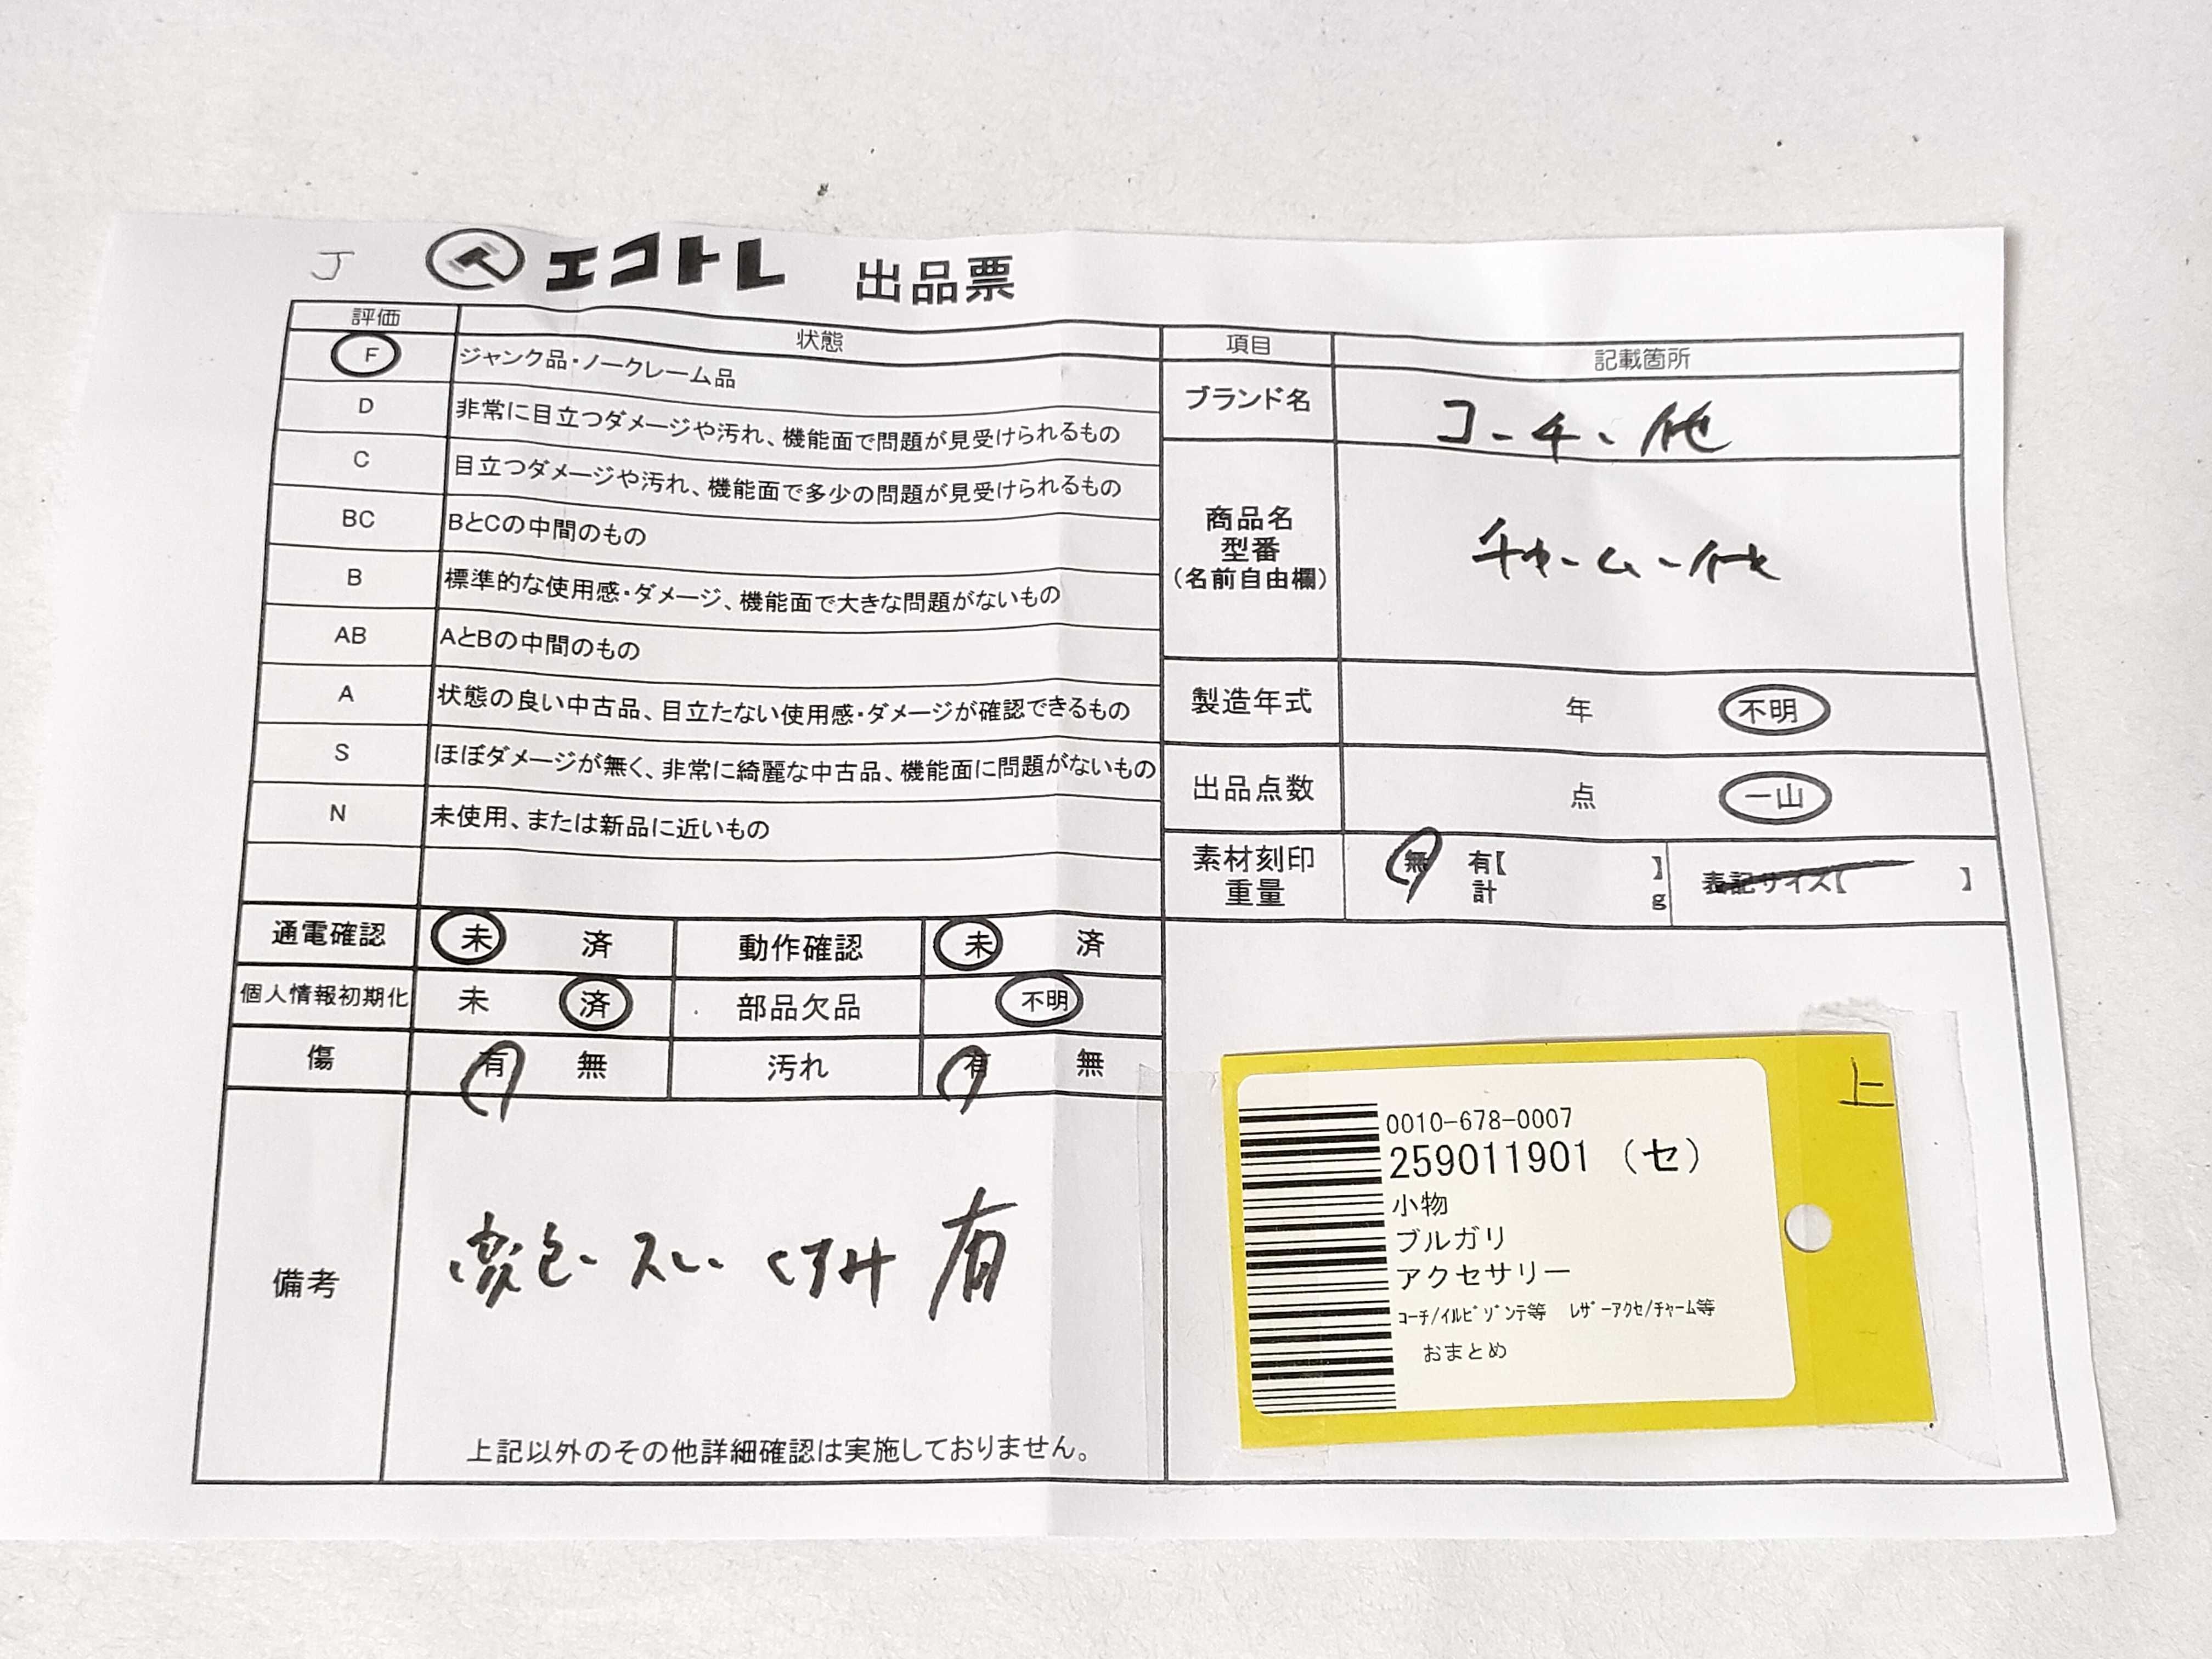 J エコトレ 出品票
評価 状態
F ジャンク品・ノークレーム品
D 非常に目立つダメージや汚れ、機能面で問題が見受けられるもの
C 目立つダメージや汚れ、機能面で多少の問題が見受けられるもの
BC BとCの中間のもの
B 標準的な使用感・ダメージ、機能面で大きな問題がないもの
AB AとBの中間のもの
A 状態の良い中古品、目立たない使用感・ダメージが確認できるもの
S ほぼダメージが無く、非常に綺麗な中古品、機能面に問題がないもの
N 未使用、または新品に近いもの
通電確認 未 済 動作確認 未 済
個人情報初期化 未 済 部品欠品 不明
傷 有 無 汚れ 有 無
備考 変色・スレ・くすみ 有
上記以外のその他詳細確認は実施しておりません。
項目 記載箇所
ブランド名 コーチ、他
商品名
型番
(名前自由欄)
チャーム・他
製造年式 年 不明
出品点数 点 一山
素材刻印 無 有【 】 表記サイズ【 】
重量 計 g
上
0010-678-0007
259011901 (セ)
小物
ブルガリ
アクセサリー
コーチ/イルビゾンテ等 レザーアクセ/チャーム等
おまとめ